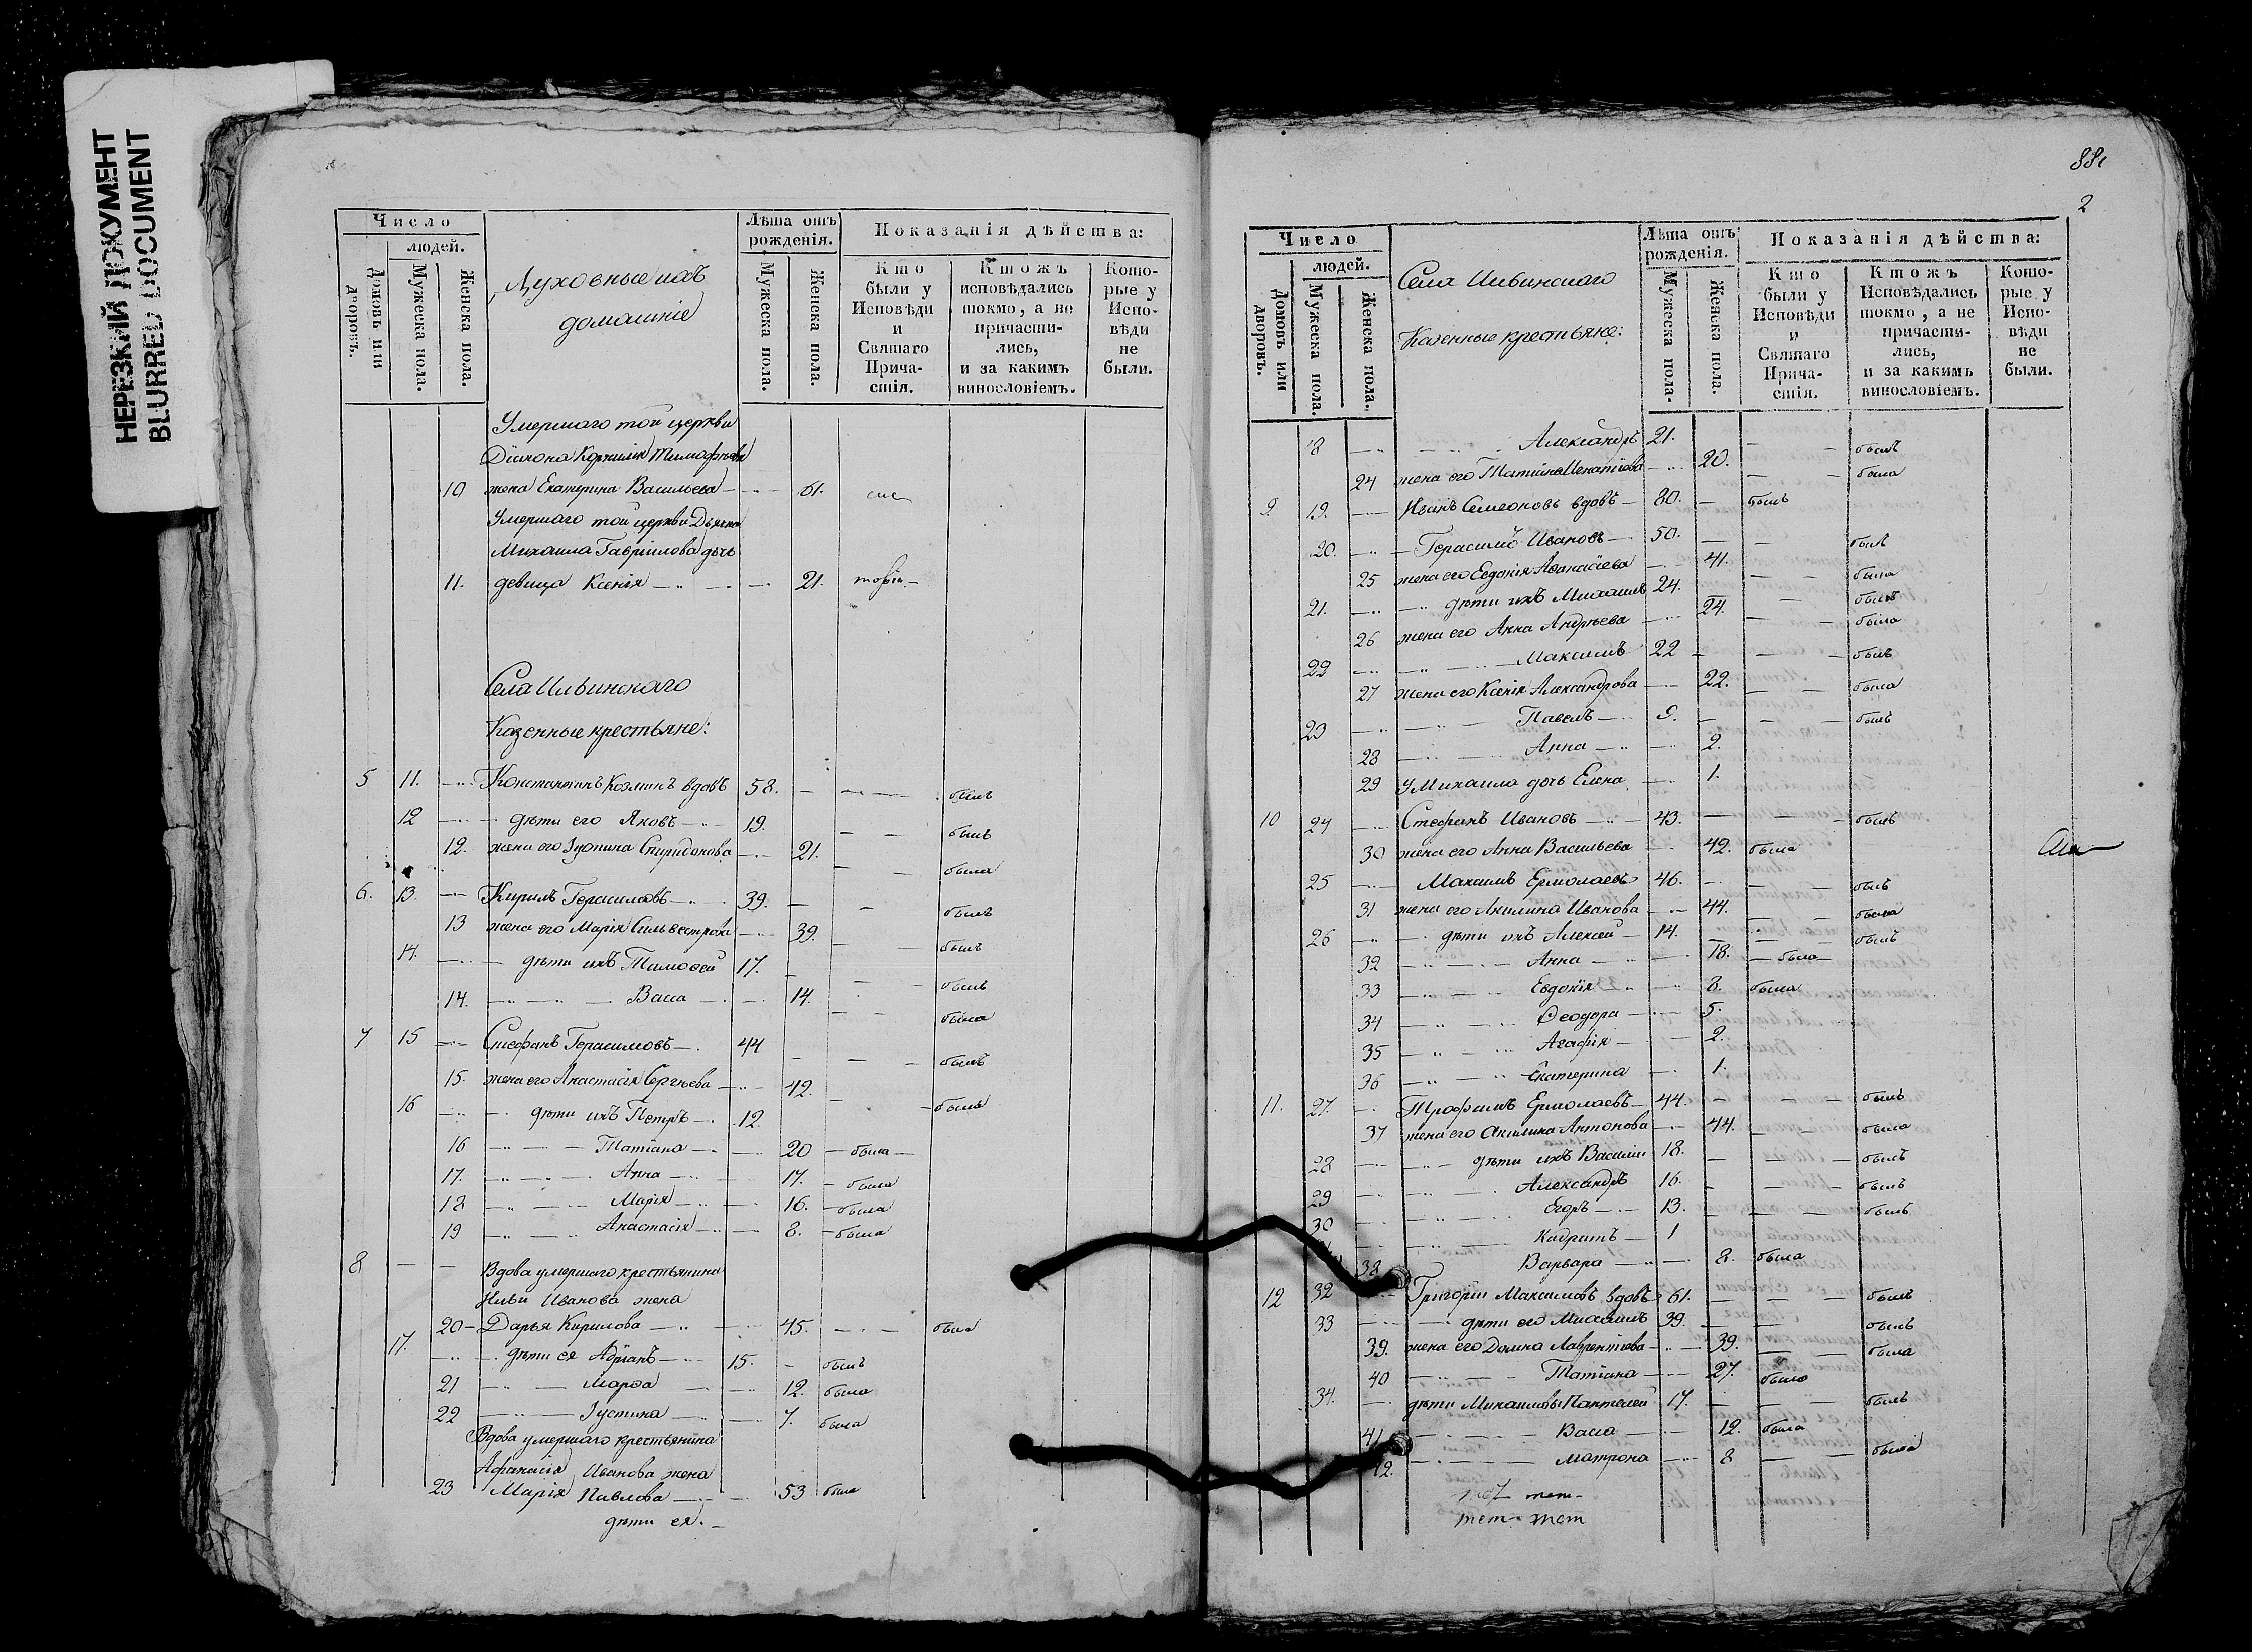 НЕРЕЗКИЙ ДОКУМЕНТ
BLURRED DOCUMENT
Число
людей.
Домовъ или дворовъ.
Мужеска пола.
Женска пола.
Духовные ихъ
домашніе
Лѣта отъ рожденія.
Мужеска пола.
Женска пола.
Показанія дѣйства:
Кто были у Исповѣди и Святаго Прича-стія.
Ктожъ исповѣдались токмо, а не причасти-лись, и за какимъ винословіемъ.
Кото-рые у Испо-вѣди не были.
Умершаго той церкви
Діакона Корнилія Тимофѣева
10 жена Екатерина Васильева 61.
Умершаго той церкви Дьячка
Михаила Гавріилова дочь
11. девица Ксенія 21.
Села Ильинскаго
Казенные крестьяне:
5 11. Константинъ Козминъ вдовъ 58. былъ
12 дѣти его Яковъ 19. былъ
12. жена его Іустина Спиридонова 21. была
6. 13. Кирилъ Герасимовъ 39. былъ
13 жена его Марія Сильвестрова 39. была
14. дѣти ихъ Тимоѳей 17. былъ
14. Васса 14. была
7 15 Стефанъ Герасимовъ 44 былъ
15. жена его Анастасія Сергѣева 42. была
16 дѣти ихъ Петръ 12.
16 Татіана 20 была
17. Анна 17. была
18 Марія 16. была
19 Анастасія 8. была
8 Вдова умершаго крестьянина
Ильи Иванова жена
20 Дарья Кирилова 45. была
17. дѣти ея Адріанъ 15. былъ
21 Марѳа 12. была
22 Іустина 7. была
Вдова умершаго крестьянина
Афанасія Иванова жена
23 Марія Павлова 53 была
дѣти ея.
88
2
Число
людей.
Домовъ или дворовъ.
Мужеска пола.
Женска пола.
Села Ильинскаго
Казенные крестьяне:
Лѣта отъ рожденія.
Мужеска пола.
Женска пола.
Показанія дѣйства:
Кто были у Исповѣди и Святаго Прича-стія.
Ктожъ Исповѣдались токмо, а не причасти-лись, и за какимъ винословіемъ.
Кото-рые у Испо-вѣди не были.
18 Александръ 21. былъ
24 жена его Татіана Игнатіева 20. была
9. 19. Иванъ Семеоновъ вдовъ 80. былъ
20. Герасимъ Ивановъ 50. былъ
25 жена его Евдокія Аѳанасіева 41. была
21. дѣти ихъ Михаилъ 24. былъ
26 жена его Анна Андрѣева 24. была
22 Максимъ 22 былъ
27 жена его Ксенія Александрова 22. была
23 Павелъ 9. былъ
28 Анна 2.
29 У Михаила дочь Елена 1.
10 24 Стефанъ Ивановъ 43. былъ
30 жена его Анна Васильева 42. была
25 Максимъ Ермолаевъ 46. былъ
31 жена его Акилина Иванова 44. была
26 дѣти ихъ Алексей 14. былъ
32 Анна 18. была
33 Евдокія 8. была
34 Ѳеодора 5.
35 Агафія 2.
36 Екатерина 1.
11. 27. Трофимъ Ермолаевъ 44. былъ
37 жена его Акилина Антонова 44. была
28 дѣти ихъ Василій 18. былъ
29 Александръ 16. былъ
30 Егоръ 13. былъ
31 Кодратъ 1
38 Варвара 8. была
12 32 Григорій Максимовъ вдовъ 61. былъ
33 дѣти его Михаилъ 39. былъ
39. жена его Домна Лаврентіева 39. была
40 Татіана 27. была
34. дѣти Михаиловы Пантелей 17. былъ
41 Васса 12. была
42. Матрона 8 была